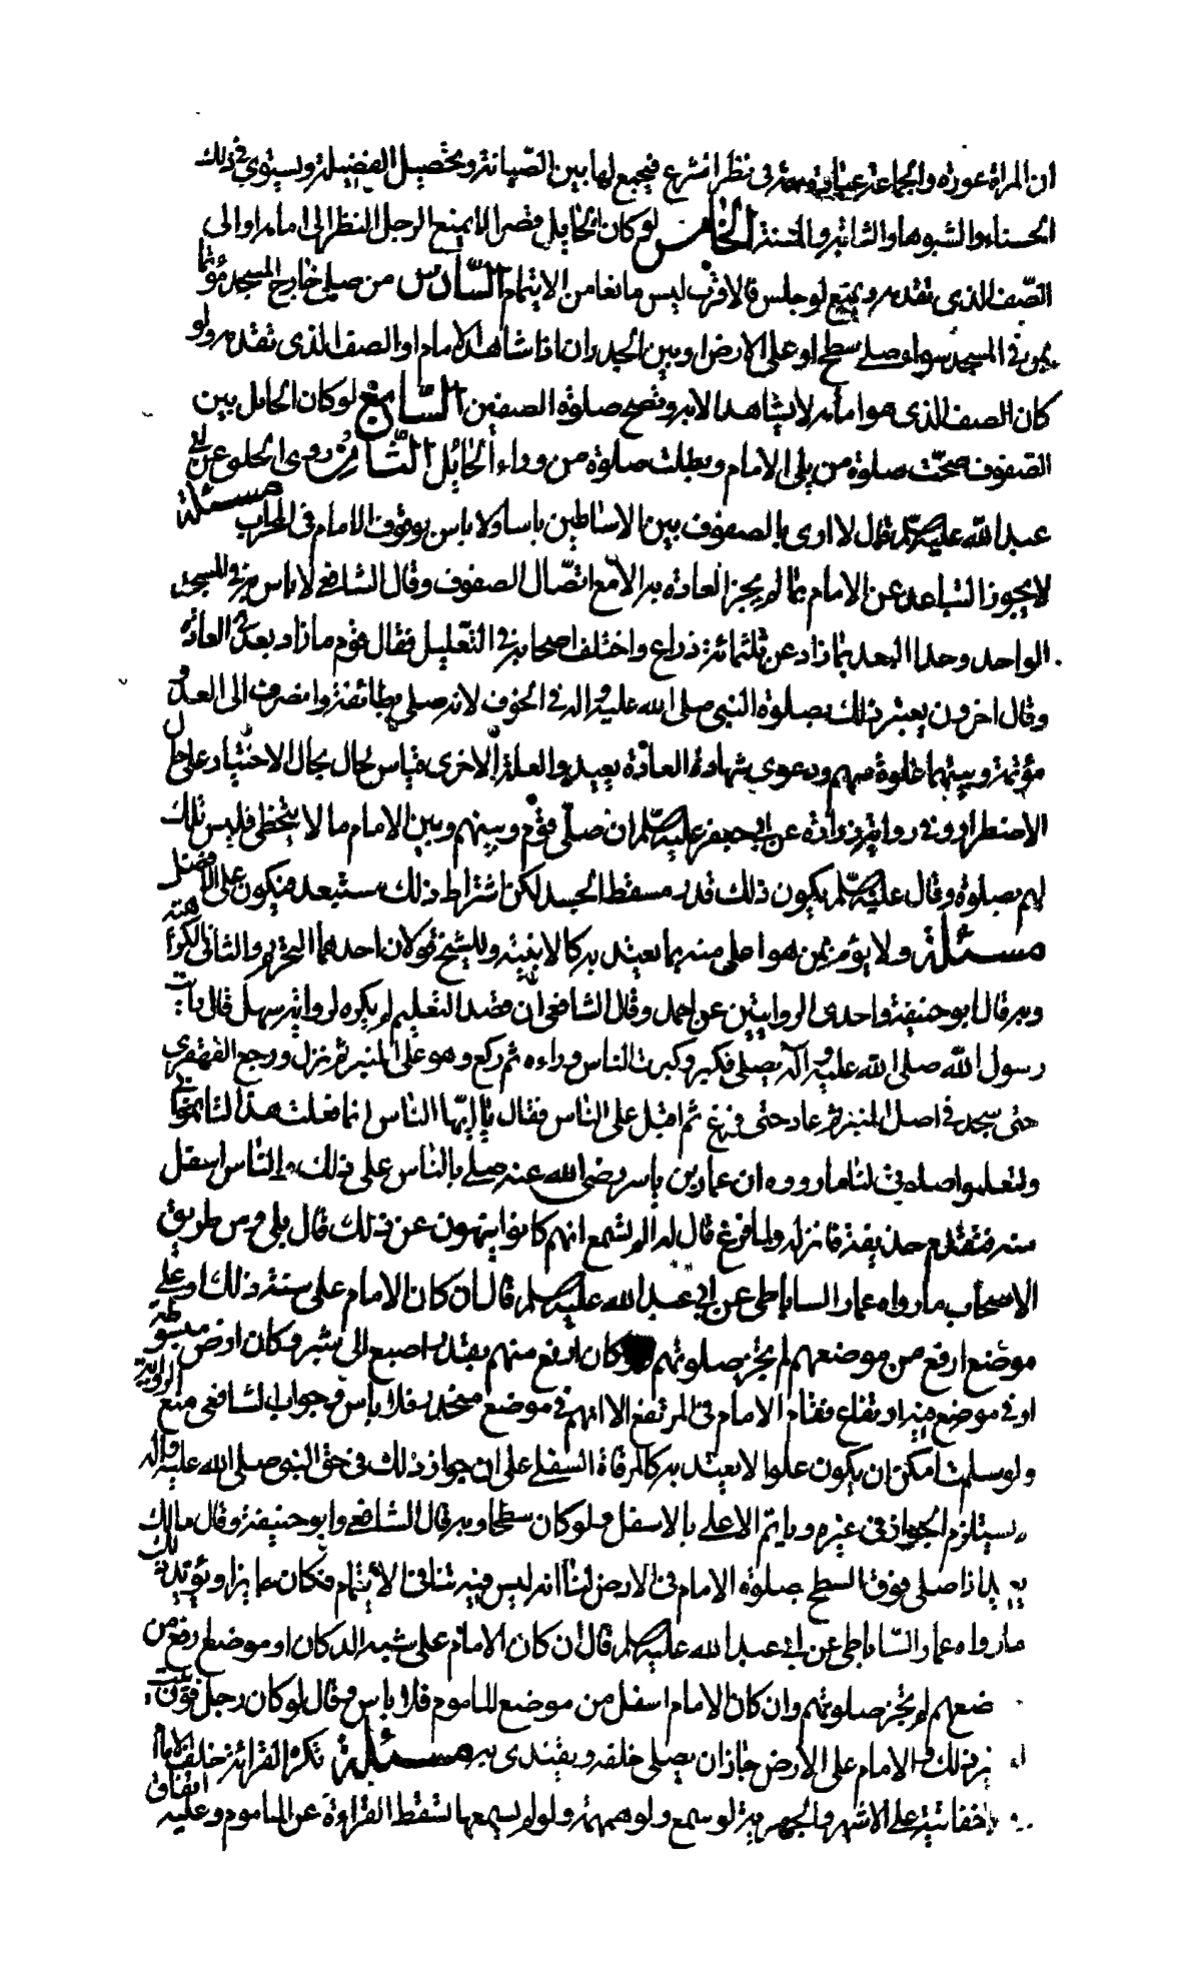 ان المراة عورة والجماعة عبادة معتبرة فى نظر الشرع فيجمع لها بين الصّيانة وتحصيل الفضيلة ويستوى فى ذلك
الحسناء والشوهاء والشابة والمسنة الخامس لو كان الحايل قصيرا لا يمنع الرجل النظر الى امامه او الى
الصّف الذى تقدمه ويمنع لو جلس فالاقرب ليس مانعا من الايتمام السّادس من صلى خارج المسجد مؤتما
بمن فى المسجد سواء صلى سطح او على الارض او بين الجدران اذا شاهد الامام او الصف الذى تقدمه ولو
كان الصف الذى هو امامه لا يشاهد الا به وتصح صلوة الصفين السّابع لو كان الحايل بين
الصّفوف صحّت صلوة من يلى الامام وبطلت صلوة من وراء الحائل الثّامن روى الحلبى عن ابى
عبد الله عليه السّلام قال لا ارى بالصفوف بين الاساطين باسا ولا باس بوقوف الامام فى المحراب مسئلة
لا يجوز التباعد عن الامام بما لم يجز العادة به الا مع اتّصال الصفوف وقال الشافعى لا باس به فى المسجد
الواحد وحد البعد بما زاد عن ثلثمائة ذراع واختلف اصحابه فى التّعليل فقال قوم ما زاد بعد فى العادة
وقال اخرون يعتبر ذلك بصلوة النبى صلى الله عليه واله فى الخوف لانه صلى بطائفة وانصرفت الى العدو
مؤتمة وبينهما غلوة سهم ودعوى شهادة العادة بعيد والعلة الاخرى قياس لحال بحال الاختيار على حال
الاضطرار وفى رواية زرارة عن ابى جعفر عليه السّلام ان صلّى قوم وبينهم وبين الامام ما لا يتخطى فليس تلك
لهم بصلوة وقال عليه السّلام يكون ذلك قدر مسقط الجسد لكن اشتراط ذلك مستبعد فيكون على الافضل
مسئلة ولا يؤم من هو اعلى منه بما يعتد به كالابنية وللشيخ قولان احدهما التحريم والثانى الكراهية
وبه قال ابو حنيفة واحدى الروايتين عن احمد وقال الشافعى ان قصد التعليم لم يكره لرواية سهل قال رايت
رسول الله صلى الله عليه وآله يصلى فكبر وكبرت الناس وراءه ثم ركع وهو على المنبر ثم نزل ورجع القهقرى
حتى سجد فى اصل المنبر ثم عاد حتى فرغ ثم اقبل على الناس فقال يا ايّها الناس انما فعلت هذا لتاتموا بى
ولتعلموا صلوتى لنا ما رووه ان عمار بن ياسر رضى الله عنه صلى بالناس على والناس اسفل
منه فتقدم حذيفة فانزله ولما فرغ قال له الم تسمع انهم كانوا ينهون عن ذلك قال بلى ومن طريق
الاصحاب ما رواه عمار الساباطى عن ابى عبد الله عليه السلام قال ان كان الامام على شبه ذلك او على
موضع ارفع من موضعهم لم يجز صلوتهم كان ارفع منهم بقدر اصبع الى شبر وكان ارض مبسوطة
او فى موضع منه ارتفاع فقام الامام فى المرتفع الا انهم فى موضع منحدر فلا باس وجواب الشافعى منع الرواية
ولو سلمت امكن ان يكون علوا لا يعتد به كالمرقاة السفلى على ان جواز ذلك فى حق النبى صلى الله عليه واله
يستلزم الجواز فى غيره وياتم الاعلى بالاسفل ولو كان سطحا وبه قال الشافعى وابو حنيفة وقال مالك
يعيد اذا صلى فوق السطح بصلوة الامام فى الارض لنا انه ليس فيه تنافى الايتمام فكان جايزا ويؤيد ذلك
ما رواه عمار السّاباطى عن ابى عبد الله عليه السلام قال ان كان الامام على شبه الدكان او موضع ارفع من
ضعهم لم يجز صلوتهم وان كان الامام اسفل من موضع الماموم فلا باس وقال لو كان رجل فوق بيت
ذلك والامام على الارض جاز ان يصلى خلفه ويقتدى به مسئلة تكره القرائة خلف الامام
اخفاتية على الاشهر والجهرية لو سمع ولو همهمة ولو لم يسمعها تسقط القراءة عن الماموم وعليه اتفاق